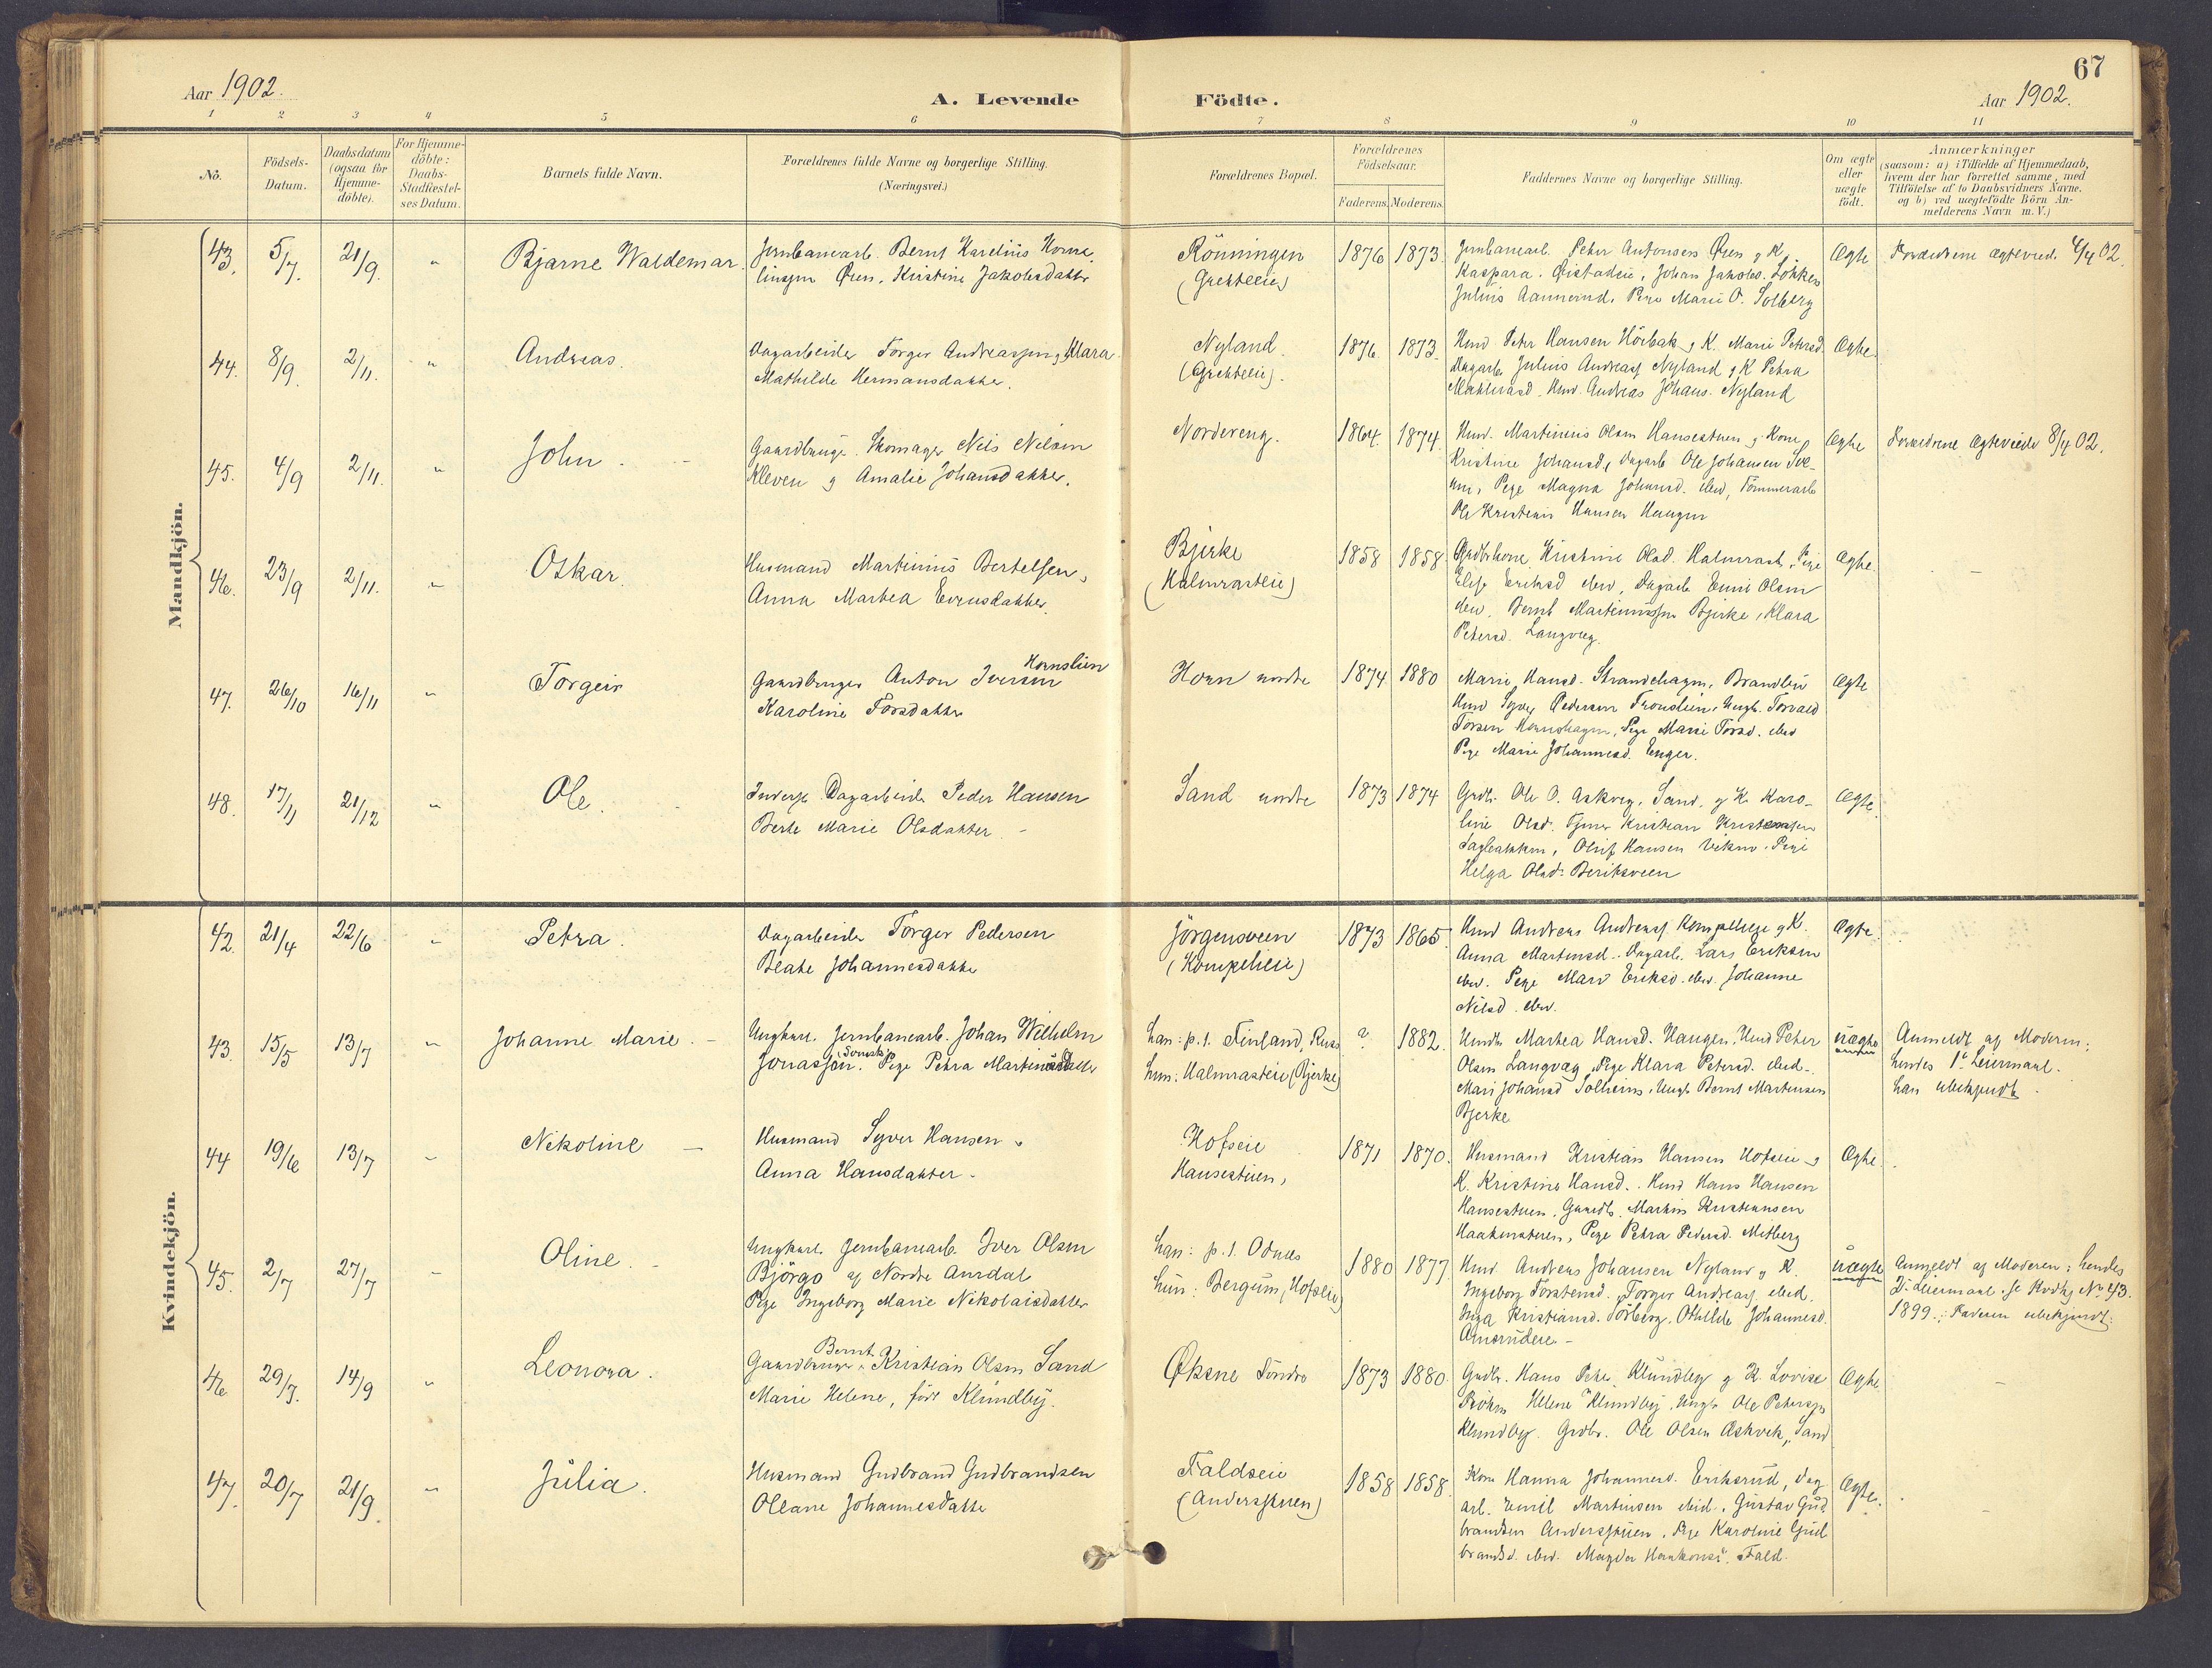 67
Aar 1902.
A. Levende Födte.
Aar 1902.
1 2 3 4 5 6 7 8 9 10 11
No.
Födsels-
Datum.
Daabsdatum
(ogsaa for
Hjemme-
döbte).
For Hjemme-
döbte:
Daabs-
Stadfæstel-
ses Datum.
Barnets fulde Navn.
Forældrenes fulde Navne og borgerlige Stilling.
(Næringsvei.)
Forældrenes Bopæl.
Forældrenes
Födselsaar.
Faderens. Moderens.
Faddernes Navne og borgerlige Stilling.
Om ægte
eller
uægte
födt.
Anmærkninger
(saasom: a) i Tilfælde af Hjemmedaab,
hvem der har forrettet samme, med
Tilföielse af to Daabsvidners Navne.
og b) ved uægtefödte Börn An-
melderens Navn m. V.)
Mandkjön.
43. 5/7. 21/9. "
Bjarne Waldemar.
Jernbanearb. Bernt Karelius
Øien, Kristine Jakobsdatter
Rönningen
(Grehteeie)
1876 1873.
Jernbanearb. Peter Antonsen Øien g K.
Kaspara. Johan Jakobs. Løkken
Julius Pige Marie O. Solberg
Ægte
Forældrene ægteviede 4/4 02.
44. 8/9. 2/11. "
Andreas.
Dagarbeider Torger Andreassen g Klara
Mathilde Hermansdatter.
Nyland.
(Grehteeie).
1876. 1873.
Hmd Peter Hansen Hörbak g K. Marie Petersd.
Dagarb Julius Andreass Nyland g K Petra
Hmd. Andreas Johans. Nyland
Ægte.
45. 4/9 2/11. "
John.
Gaardbruger Skomager Nils Nilsen
Kleven g Amalie Johansdatter.
Nordereng.
1864. 1874.
Hmd. Martinius Olsen Hansestuen g Kone
Kristine Johansd, Dagarb Ole Johansen
Pige Magna Johansd. ibid, Tömmerarb
Ole Kristian Hansen Haugen
Ægte
Forældrene ægteviede 8/4 02.
46. 23/9 2/11. "
Oskar.
Husmand Martinius Bertelsen,
Anna Marthea Evensdatter.
Bjerke
(Halmrasteie)
1858 1858.
Kristine Olsd. Halmrast, Pige
Elise Eriksd ibid, Dagarb Emil Olsen
ibid. Bernt Martiniussen Bjerke, Klara
Petersd. Langvæg.
Ægte.
47. 26/10 16/11 "
Torgeir
Hornslien
Gaardbruger Anton Iversen
Karoline Torsdatter
Horn nordre
1874. 1880
Marie Hansd. Strandehagen, Brandlien
Hmd Syver Pedersen Fronslien, Ungk. Torvald
Torsen Hornshagen, Pige Marie Torsd. ibid
Pige Marie Johannesd. Enger.
Ægte
48. 17/11 21/12 "
Ole.
Inders. Dagarbeider Peder Hansen
Berte Marie Olsdatter
Sand nordre
1873 1874
Grdb. Ole O. Askvig, Sand, g K. Karo-
line Olsd. Tjener Kristian Kristensen
Sagbakken, Oluf Hansen Viken, Pige
Helga Olsd. Beriksveen
Ægte.
Kvindekjön.
42. 21/4 22/6 "
Petra.
Dagarbeider Torger Pedersen
Beate Johannesdatter
Jörgensveen
(Kompeheie)
1873 1865.
Hmd Andreas Andreass. g K.
Anna Martinsd. Dagarb. Lars Eriksen
ibid. Pige Mari Eriksd. ibid. Johanne
Nilsd. ibid.
Ægte.
43. 15/5 13/7 "
Johanne Marie.
Ungkarl. Jernbanearb. Johan Wilhelm
Svensk
Jonassön. Pige Petra Martinsdatter
han: p. t. Finland, Russ
hun: Halmrasteie (Bjerke)
? 1882.
Marthea Hansd. Haugen, Hmd Peter
Olsen Langvæg, Pige Klara Petersd. ibid.
Mari Johansd Solheim, Ungk Bernt Martinsen
Bjerke
uægte
Anmeldt af Moderen;
hendes 1ste Leiermaal.
han ubekjendt.
44 19/6 13/7 "
Nikoline
Husmand Syver Hansen g
Anna Hansdatter.
Hofseie
Hansestuen,
1871 1870.
Husmand Kristian Hansen Hofseie g
K. Kristine Hansd. Hmd Hans Hansen
Hansestuen. Gaardb. Martin Kristiansen
Haakenstuen, Pige Petra Pedersd. Mitberg
Ægte.
45. 2/7 27/7 "
Oline.
Ungkarl. Jernbanearb. Iver Olsen
Björgo af Nordre Aurdal
Pige Ingeborg Marie Nikolaisdatter
han: p. t. Odnes
hun: Bergum, (Hofseie)
1880 1877
Hmd. Andreas Johansen Nyland g K.
Ingeborg Torstensd. Torger Andreass. ibid.
Inga Kristiansd. Torberg. Othilde Johannesd.
Amsrudeie.
uægte
Anmeldt af Moderen; hendes
2. Leiermaal. se Kvdkj No 43.
1899. Faderen ubekjendt.
46. 29/7. 14/9 "
Leonora.
Bernt
Gaardbruger Kristian Olsen Sand
Marie Helene, föd Klundby.
Øksne Söndre
1873 1880.
Grdbr. Hans Peter Klundby g K. Lovise
Helene Klundby, Ungk Ole Petersen
Klundby. Grdbr. Ole Olsen Askvik, Sand
Ægte
47. 20/7 21/9. "
Julia.
Husmand Gudbrand Gudbrandsen
Oleane Johannesdatter
Faldseie
(Andersstuen)
1858 1858.
Kone Hanna Johannesd. Eriksrud, Dag
arb. Emil Martinsen ibid, Gustav Gud
brandsen Andersstuen. Pige Karoline Gud
brandsd. ibid. Magda Haakonsd. Fald.
Ægte.